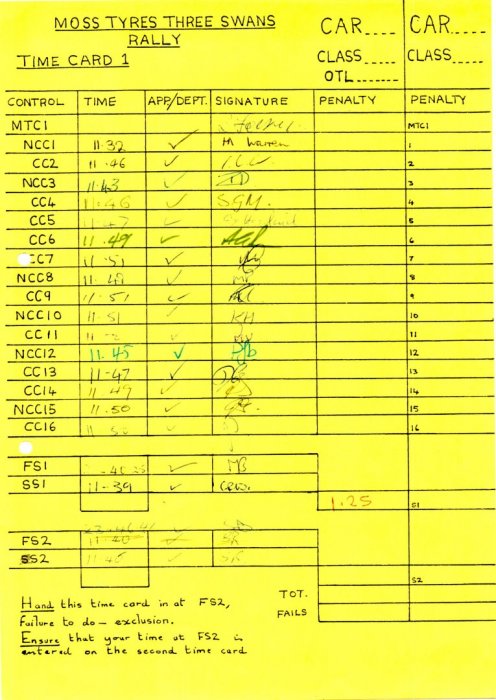 MOSS TYRES THREE SWANS
RALLY
TIME CARD 1
CAR....
CLASS.....
OTL.......
CAR....
CLASS.....
CONTROL TIME APP/DEPT. SIGNATURE PENALTY PENALTY
MTC1 MTC1
NCC1 11.32 ✓ M Warren 1
CC2 11.46 ✓ 2
NCC3 11.43 ✓ 3
CC4 11.46 ✓ SGM. 4
CC5 11.47 ✓ 5
CC6 11.49 ✓ 6
CC7 11.51 ✓ 7
NCC8 11.49 ✓ MV 8
CC9 11.51 ✓ 9
NCC10 11.51 ✓ KH 10
CC11 11 ✓ 11
NCC12 11.45 ✓ 12
CC13 11-47 ✓ 13
CC14 11 49 ✓ 14
NCC15 11.50 ✓ 15
CC16 11 ✓ 16
FS1 ✓ MB
SS1 11-39 ✓ 1.25 S1
FS2 11-40 ✓ SR
SS2 11-40 ✓ SR
S2
TOT.
FAILS
Hand this time card in at FS2,
Failure to do - exclusion.
Ensure that your time at FS2 is
entered on the second time card